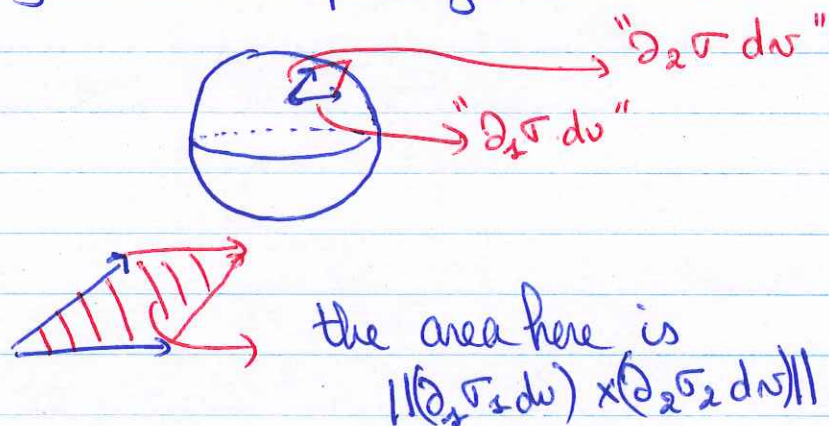 "∂₂σ dv"
"∂₁σ du"
the area here is
||(∂₁σ₁du) x(∂₂σ₂ dv)||